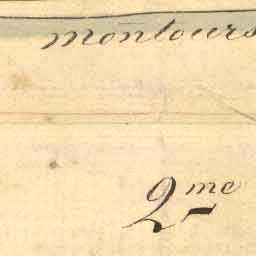 montours
2me